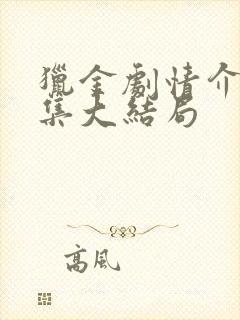 獵金劇情介
集大結局
高風